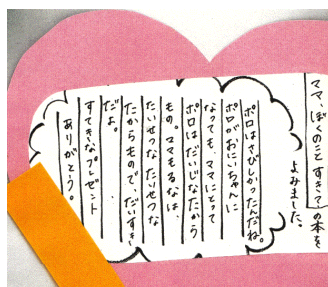 ママ、ぼくのことすきて?の本を
よみました。
ポロはさびしかったんだね。
ポロがおにいちゃんに
なっても、ママにとって
ポロはだいじなたから
もの。ママもるなは、
たいせつなたいせつな
たからもので、だいすき
だよ。
すてきなプレゼント
ありがとう。